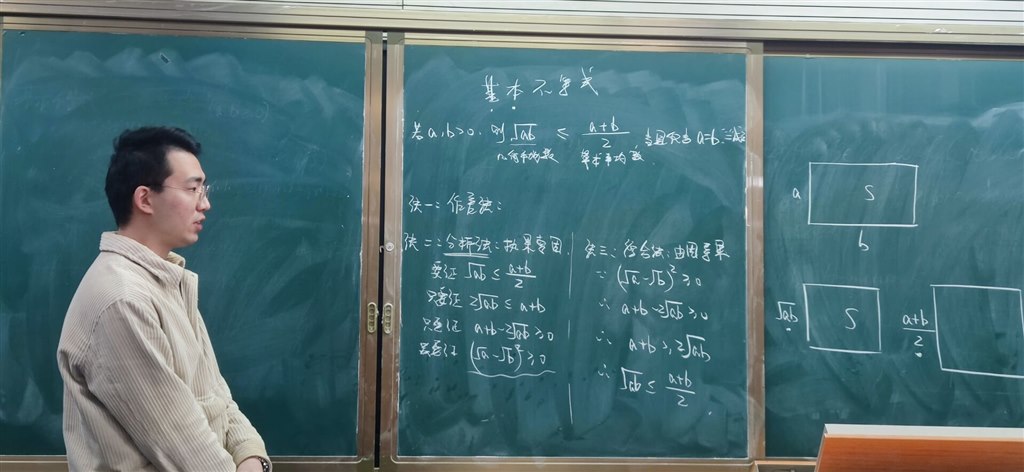 基本不等式
若a,b>0,则√ab ≤ a+b/2 当且仅当a=b,
几何平均数 算术平均数
法一:作差法:
法二:分析法:执果索因
要证 √ab ≤ a+b/2
只要证 2√ab ≤ a+b
只要证 a+b-2√ab ≥ 0
只要证 (√a-√b)² ≥ 0
法三:综合法:由因导果
∵ (√a-√b)² ≥ 0
∴ a+b-2√ab ≥ 0
∴ a+b ≥ 2√ab
∴ √ab ≤ a+b/2
a S
b
√ab S
a+b/2